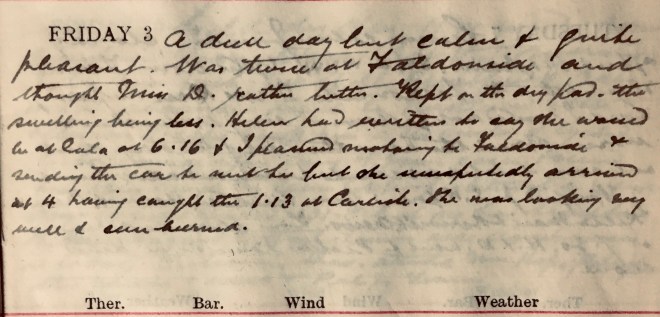 FRIDAY 3 A dull day but calm & quite
pleasant. Was twice at Faldonside and
thought Miss D. rather better. Kept on the dry pad. the
swelling being less. Helen had written to say she would
be at Gala at 6.16 & I planned motoring to Faldonside &
sending the car to meet her but she unexpectedly arrived
at 4 having caught the 1.13 at Carlisle. She was looking very
well & sun-burned.
Ther. Bar. Wind Weather